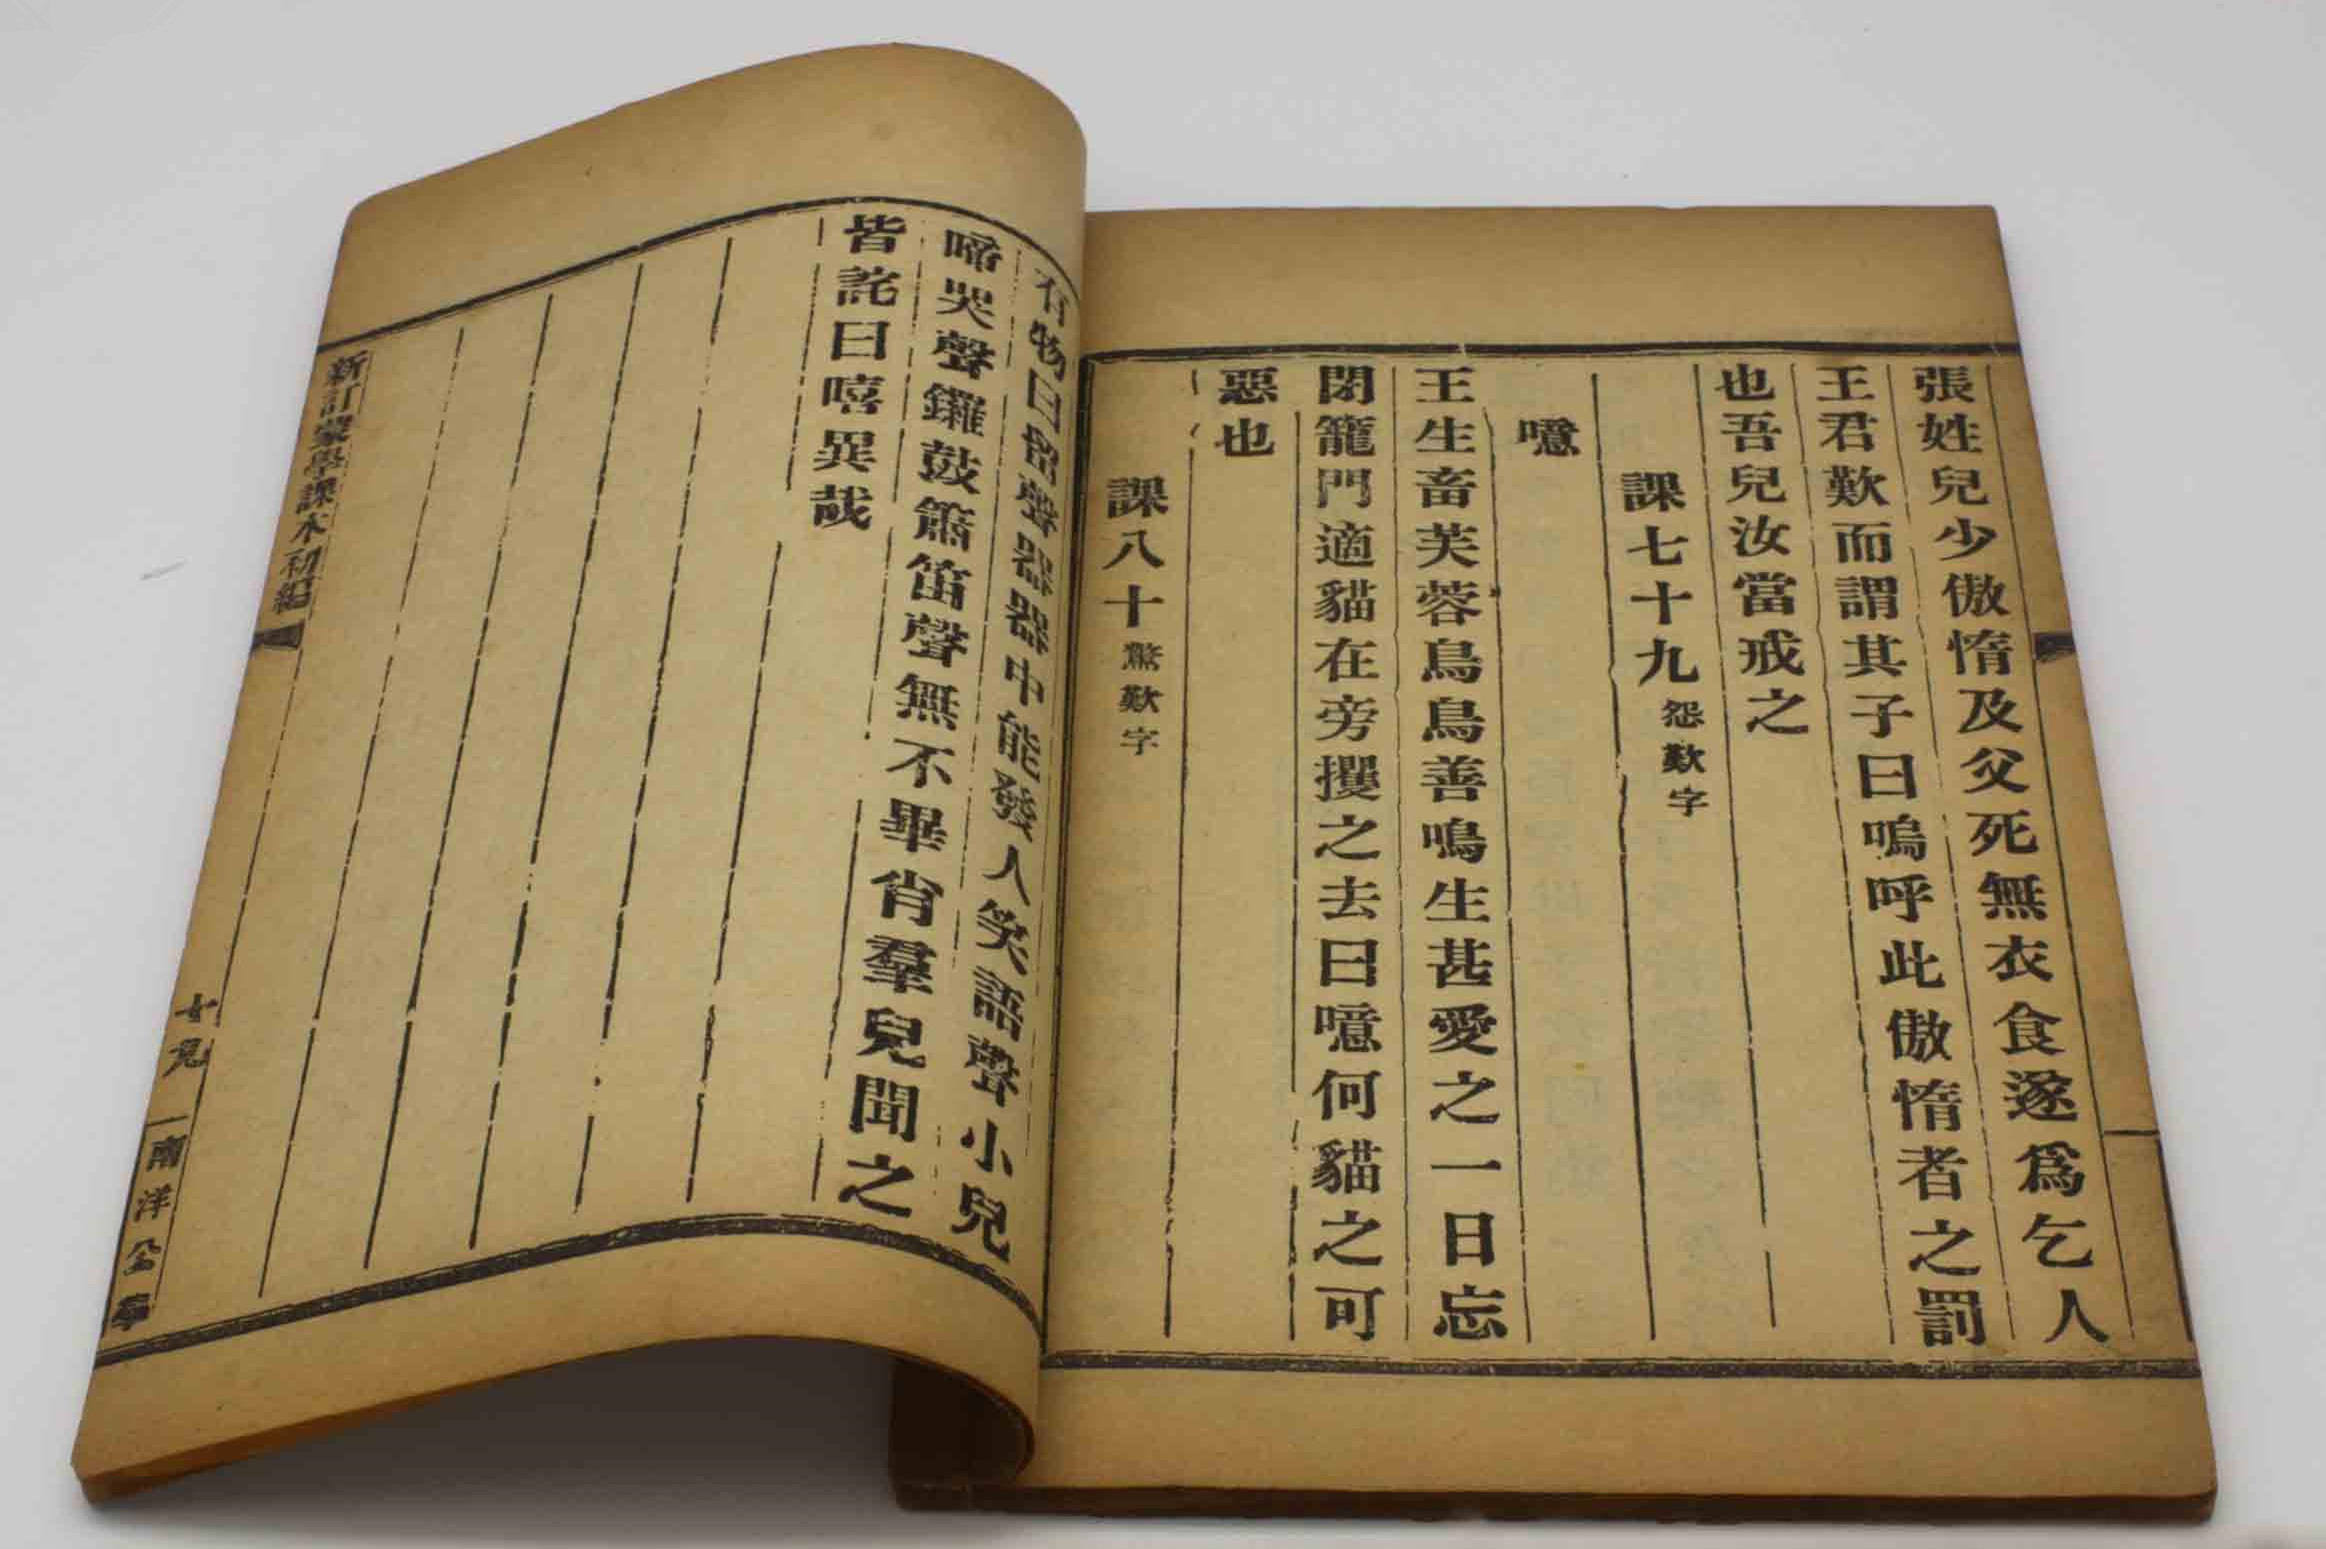 張姓兒少傲惰及父死無衣食遂爲乞人
王君歎而謂其子曰嗚呼此傲惰者之罰
也吾兒汝當戒之
課七十九 怨歎字
噫
王生畜芙蓉鳥鳥善鳴生甚愛之一日忘
閉籠門適貓在旁攫之去曰噫何貓之可
惡也
課八十 驚歎字
有物曰留聲器器中能發人笑語聲小兒
啼哭聲鑼鼓簫笛聲無不畢肖羣兒聞之
皆詫曰嘻異哉
新訂蒙學課本初編
南洋公學